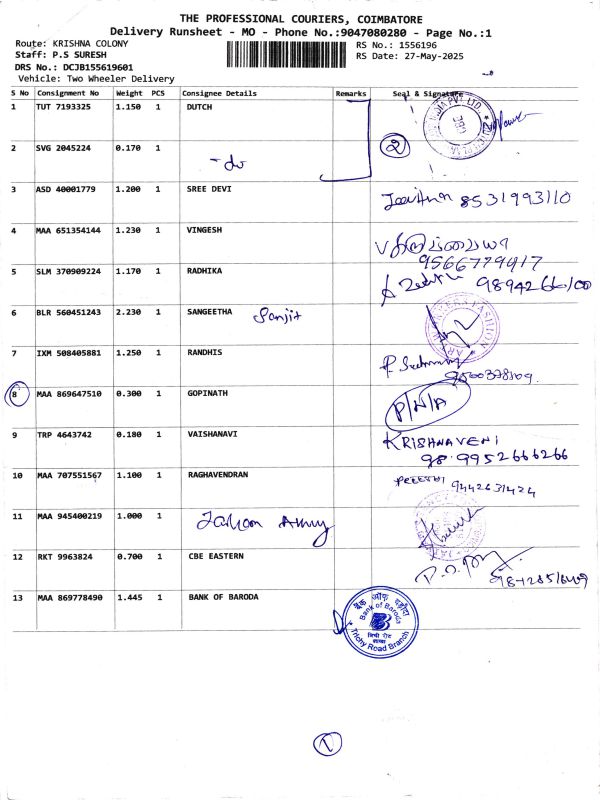 THE PROFESSIONAL COURIERS, COIMBATORE
Delivery Runsheet - MO - Phone No.:9047080280 - Page No.:1
Route: KRISHNA COLONY RS No.: 1556196
Staff: P.S SURESH RS Date: 27-May-2025
DRS No.: DCJB155619601
Vehicle: Two Wheeler Delivery
S No Consignment No Weight PCS Consignee Details Remarks Seal & Signature
1 TUT 7193325 1.150 1 DUTCH
2 SVG 2045224 0.170 1 - do 2
3 ASD 40001779 1.200 1 SREE DEVI 8531993110
4 MAA 651354144 1.230 1 VINGESH
9566779417
5 SLM 370909224 1.170 1 RADHIKA
6 BLR 560451243 2.230 1 SANGEETHA Sanjit
7 IXM 508405881 1.250 1 RANDHIS
8 MAA 869647510 0.300 1 GOPINATH P/N/A
9 TRP 4643742 0.180 1 VAISHANAVI KRISHNAVENI
98.9952666266
10 MAA 707551567 1.100 1 RAGHAVENDRAN 9442631424
11 MAA 945400219 1.000 1
12 RKT 9963824 0.700 1 CBE EASTERN
13 MAA 869778490 1.445 1 BANK OF BARODA
बैंक ऑफ़ बड़ौदा
Bank of Baroda
Trichy Road Branch